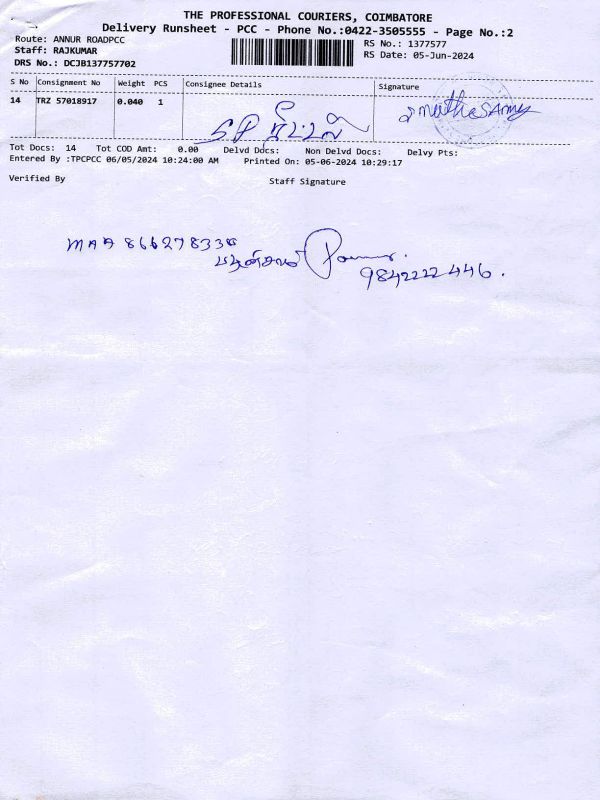 THE PROFESSIONAL COURIERS, COIMBATORE
Delivery Runsheet - PCC - Phone No.:0422-3505555 - Page No.:2
Route: ANNUR ROADPCC
RS No.: 1377577
Staff: RAJKUMAR
RS Date: 05-Jun-2024
DRS No.: DCJB137757702
S No Consignment No Weight PCS Consignee Details Signature
14 TRZ 57018917 0.040 1
Tot Docs: 14 Tot COD Amt: 0.00 Delvd Docs: Non Delvd Docs: Delvy Pts:
Entered By :TPCPCC 06/05/2024 10:24:00 AM Printed On: 05-06-2024 10:29:17
Verified By Staff Signature
MAA
9842222446.